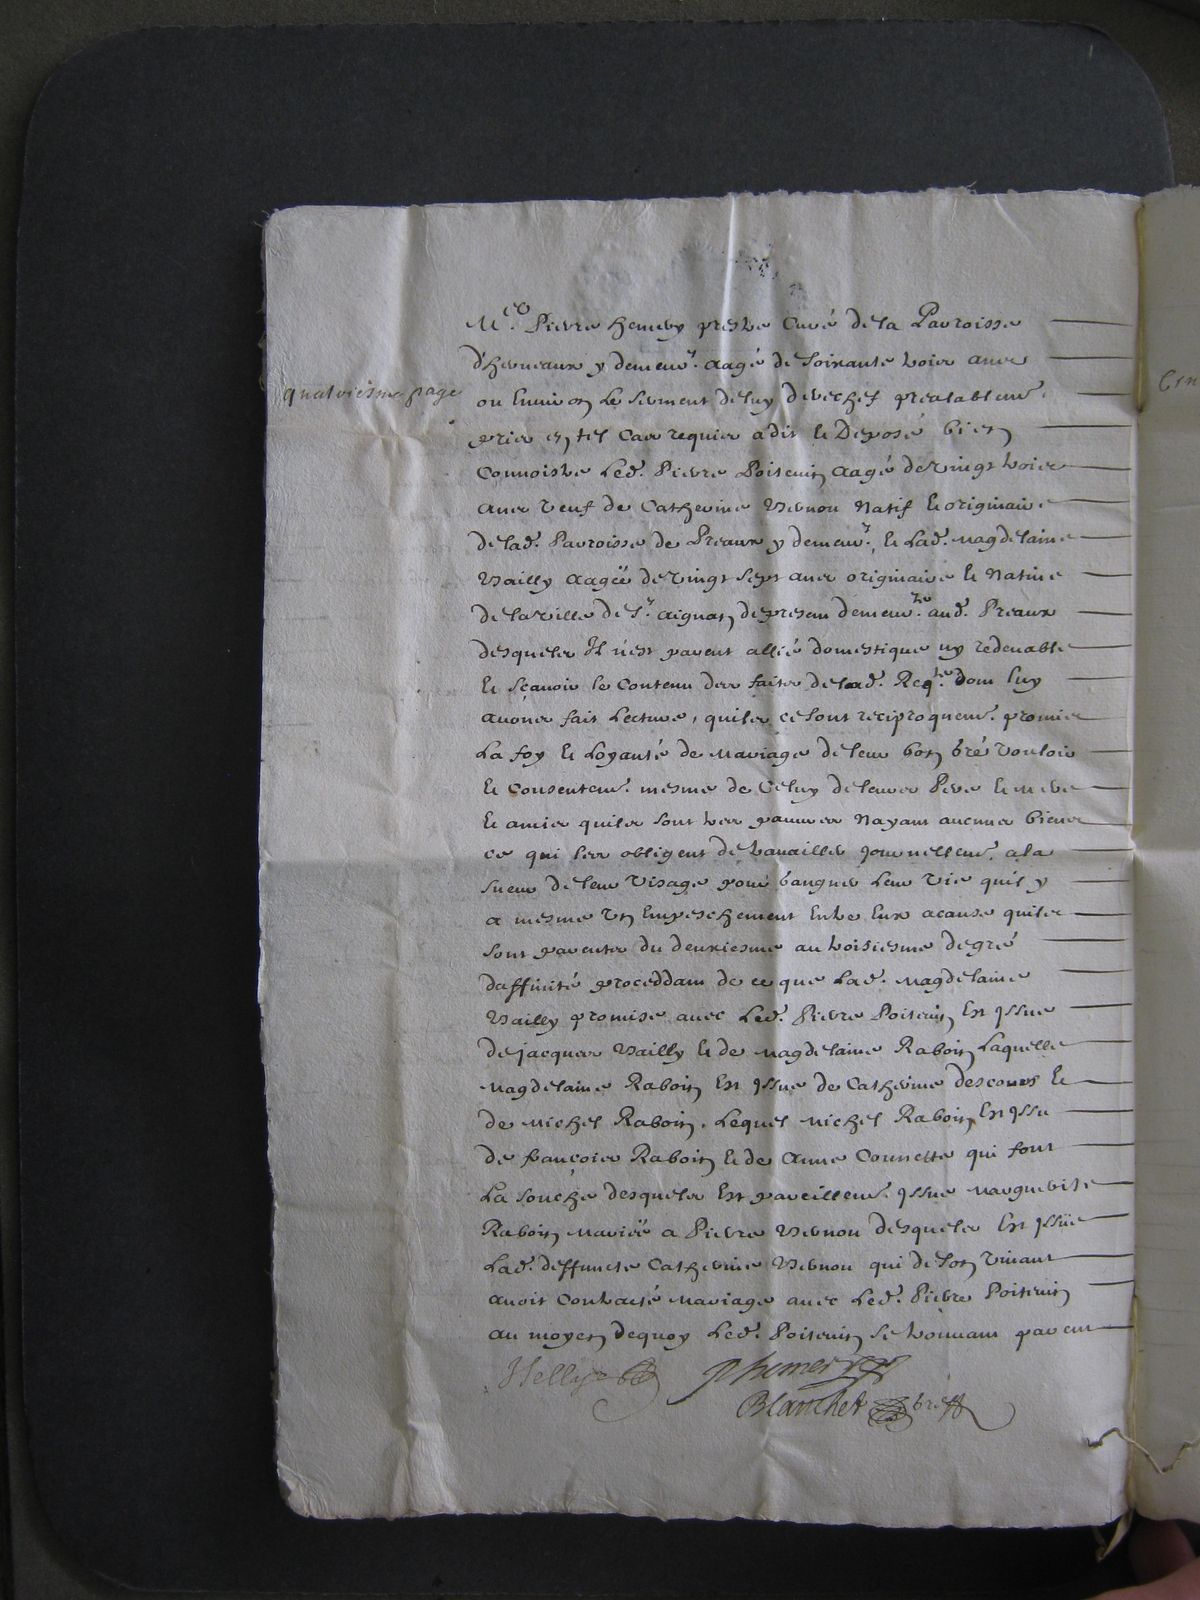 M.re Pierre hemery prestre Curé de la Parroisse
d'herueaux y demeur.t aagé de soixante trois ans
quatriesme page
ou Enuiron Le serment de luy derechef prealablem.t
pris en tel Cas requis a dit Et Deposé bien
Connoistre Led. Pierre Poiteuin aagé de vingt trois
ans veuf de Catherine Vernon Natif Et originaire
de lad. Parroisse de Preaux y demeur.t, Et Lad. Magdelaine
Vailly aagëe de vingt sept ans originaire Et Natiue
de la ville de S.t aignan de present demeur.te aud. Preaux
desquels Il n'est parent allié domestique ny redeuable
Et sçauoir le Contenu des faits de lad. Req.te dont luy
auons fait Lecture, quils ce sont reciproquem.t promis
La foy Et Loyauté de Mariage de leur bon gré vouloir
Et Consentem.t mesme de Celuy de leurs Pere Et mere
Et amis quils sont tres pauures Nayant aucuns biens
ce qui les obligent de trauailler journellem.t a la
sueur de leur visage pour gangner Leur vie quil y
a mesme vn Empeschement Entre Eux acause quils
sont parents du deuxiesme au troisiesme degré
daffinité proceddant de ce que Lad. Magdelaine
Vailly promise auec Led. Pierre Poiteuin Est Jssue
de jacques Vailly Et de Magdelaine Raboin Laquelle
Magdelaine Raboin Est Jssue de Catherine descours Et
de Michel Raboin, Lequel Michel Raboin Est Jssu
de françois Raboin Et de Anne Cornette qui font
La souche desquels Est pareillem.t Jssue Marguerite
Raboin Mariëe a Pierre Vernon desquels Est Jssüe
Lad. deffuncte Catherine Vernon qui de son viuant
auoit Contracté Mariage auec Led. Pierre Poiteuin
au moyen dequoy Led. Poiteuin se trouuant parent
Helly P hemery
Blanchet gref